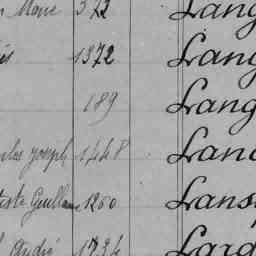 Marie 372 Lang
1372 Lang
189 Lang
Joseph 1448 Lan
Guillau 1260 Lans
André 1734 Larg